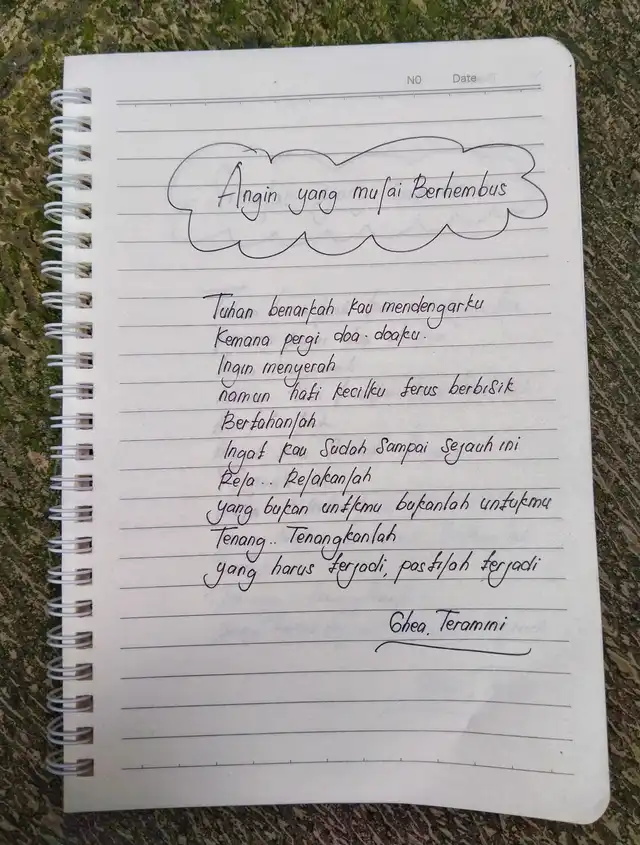 NO Date
Angin yang mulai Berhembus
Tuhan benarkah kau mendengarku
Kemana pergi doa-doaku.
Ingin menyerah
namun hati kecilku terus berbisik
Bertahanlah
Ingat kau sudah sampai sejauh ini
Rela.. Relakanlah
yang bukan untkmu bukanlah untukmu
Tenang.. Tenangkanlah
yang harus terjadi, pastilah terjadi
Ghea, Teramini